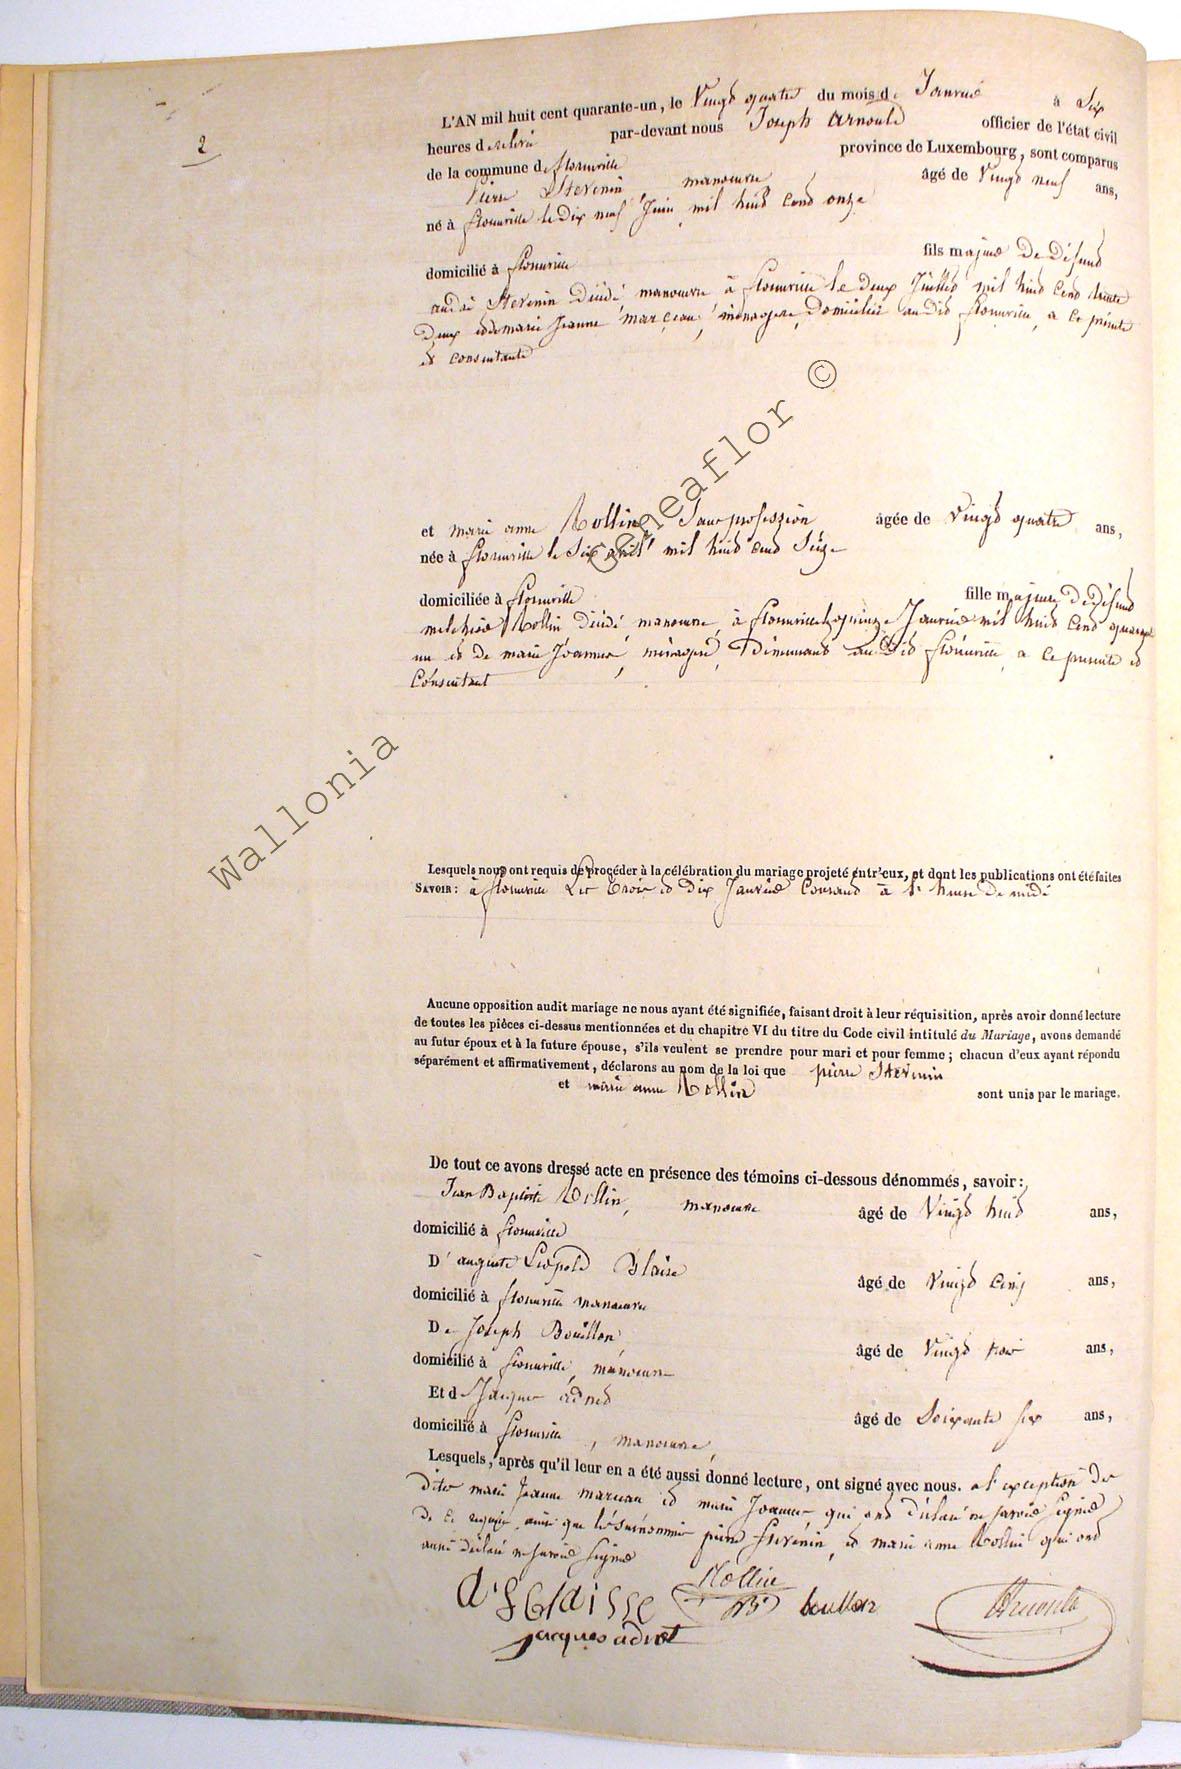 2
L'AN mil huit cent quarante-un, le Vingt quatre du mois de Janvier à Six
heures de relevée par-devant nous Joseph Arnould officier de l'état civil
de la commune de florenville province de Luxembourg, sont comparus
Pierre Stevenin, manoeuvre âgé de Vingt neuf ans,
né à florenville le Dix neuf Juin mil huit cent onze
domicilié à florenville fils majeur De Défunt
Stevenin Décédé, manoeuvre à florenville le Deux Juillet mil huit cent trente
Deux et de marie Jeanne marceau, ménagère, Domiciliée audit florenville, a ce présente
et consentante
et marie anne Rollin Sans profession âgée de Vingt quatre ans,
née à florenville le Six avril mil huit cent Seize
domiciliée à florenville fille majeure de Défunt
Rollin Décédé manoeuvre, à florenville le quinze Janvier mil huit cent quarante
un et De marie Joannes, ménagère, Demeurant audit florenville a ce présente et
consentant
Lesquels nous ont requis de procéder à la célébration du mariage projeté entr'eux, et dont les publications ont été faites
SAVOIR : à florenville Les Trois et dix Janvier Courant à l'heure De midi
Aucune opposition audit mariage ne nous ayant été signifiée, faisant droit à leur réquisition, après avoir donné lecture
de toutes les pièces ci-dessus mentionnées et du chapitre VI du titre du Code civil intitulé du Mariage, avons demandé
au futur époux et à la future épouse, s'ils veulent se prendre pour mari et pour femme ; chacun d'eux ayant répondu
séparément et affirmativement, déclarons au nom de la loi que pierre Stevenin
et marie anne Rollin sont unis par le mariage.
De tout ce avons dressé acte en présence des témoins ci-dessous dénommés, savoir :
Jean Baptiste Rollin, manoeuvre âgé de Vingt huit ans,
domicilié à florenville
D' auguste Léopold Blaise âgé de Vingt Cinq ans,
domicilié à florenville manoeuvre
De Joseph Bouillon, âgé de Vingt trois ans,
domicilié à florenville, manoeuvre
Et de Jacques adnet âgé de Soixante six ans,
domicilié à florenville, manoeuvre,
Lesquels, après qu'il leur en a été aussi donné lecture, ont signé avec nous. a l'exception des
dites marie Jeanne marceau et marie Joannes qui ont déclaré ne savoir Signer
De ce requis, ainsi que les surnommés pierre Stevenin, et marie anne Rollin qui ont
aussi déclaré ne savoir Signer
Rollin
JBte bouillon Arnould
jacques adnet
Wallonia Geneaflor ©